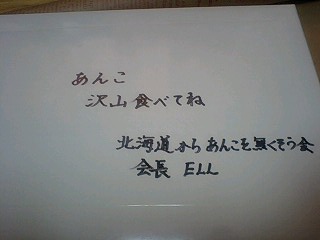 あんこ
沢山食べてね
北海道からあんこを無くそう会
会長 ELL